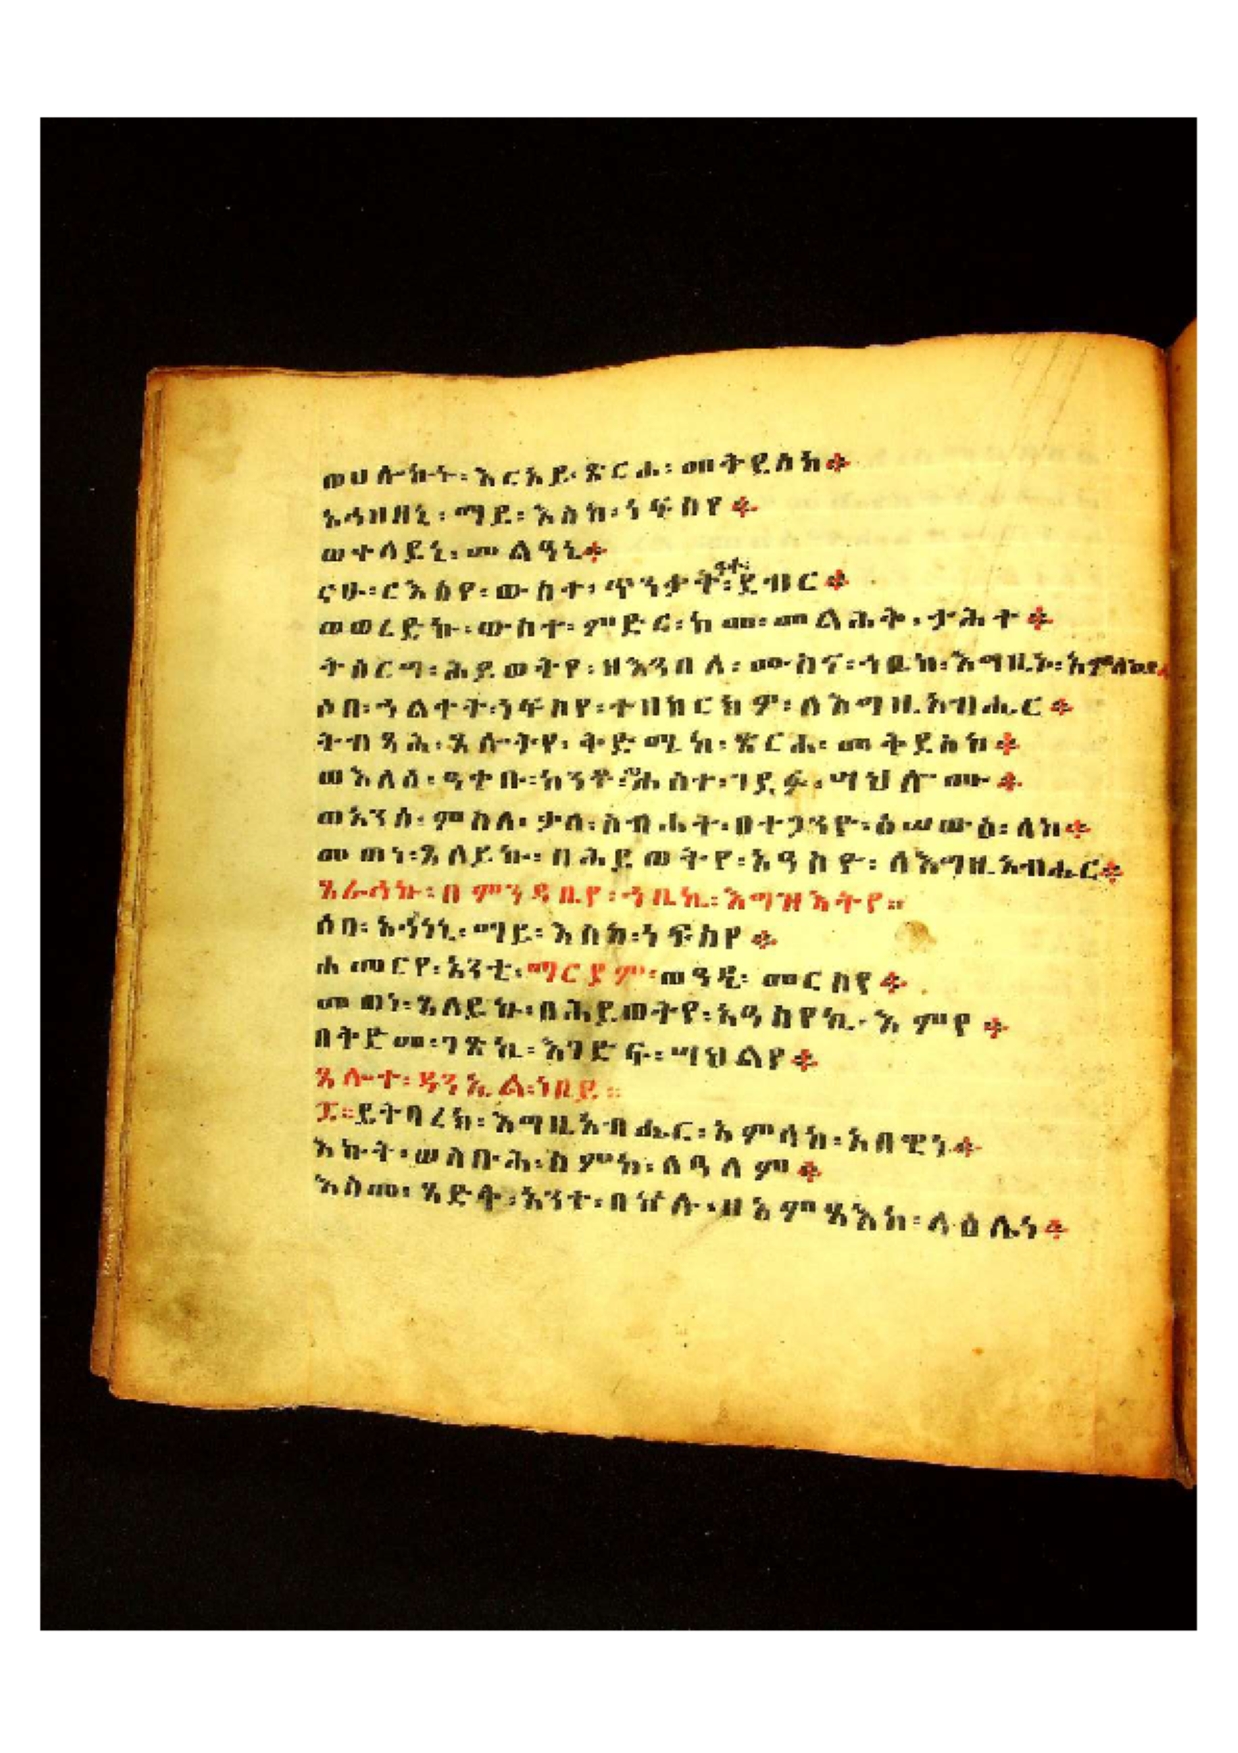 ወህሎኩኑ፡እርአይ፡ጽርሐ፡መትደስከ።
አኀዘዘኒ፡ማይ፡እስከ፡ነፍስየ።
ወተላደኒ፡መልዓኒ።
ናሁ፡ርእስየ፡ውስተ፡ጥንቃት፡ደብር።
ወወረድኩ፡ውስተ፡ምድር፡ከመ፡መልሕቅ፡ታሕተ።
ትዕርግ፡ሕይወትየ፡ዘእንበለ፡ሙስና፡ኀቤከ፡እግዚኦ፡አምላክየ።
ሶበ፡ኀልቀት፡ነፍስየ፡ተዘከርክዎ፡ለእግዚአብሔር።
ትብጻሕ፡ጸሎትየ፡ቅድሜከ፡ጽርሐ፡መትደስከ።
ወእለሰ፡ዓቀቡ፡ከንቶ፡ሐሰተ፡ገደፉ፡ሣህሎሙ።
ወአንሰ፡ምስለ፡ቃለ፡ስብሐት፡በተጋንዮ፡ዕሠውዕ፡ለከ።
መጠነ፡ጸለይኩ፡በሕይወትየ፡አዓስዮ፡ለእግዚአብሔር።
ጸራኅኩ፡በምንዳቤየ፡ኀቤኪ፡እግዝእትየ።
ሶበ፡አኀነኒ፡ማይ፡እስከ፡ነፍስየ።
ሐመርየ፡አንቲ፡ማርያም፡ወዓዲ፡መርስየ።
መጠነ፡ጸለይኩ፡በሕይወትየ፡አዓስየኪ፡እምየ።
በቅድመ፡ገጽኪ፡እገድፍ፡ሣህልየ።
ጸሎተ፡ዳንኤል፡ነቢይ።
፲።ይትባረክ፡እግዚአብሔር፡አምላከ፡አበዊነ።
እኩት፡ወስቡሕ፡ስምከ፡ለዓለም።
እስመ፡ጻድቅ፡አንተ፡በኵሉ፡ዘአምጻእከ፡ላዕሌነ።